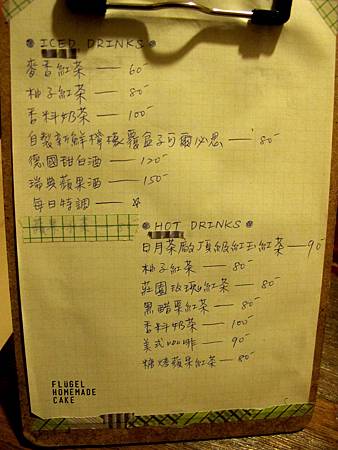 ICED DRINKS
麥香紅茶 — 60-
柚子紅茶 — 80-
香料奶茶 — 100-
自製新鮮檸檬覆盆子可爾必思 — 80-
德國甜白酒 — 120-
瑞典蘋果酒 — 150-
每日特調 — ☆
HOT DRINKS
日月茶廠頂級紅玉紅茶 — 90-
柚子紅茶 — 80-
莊園玫瑰紅茶 — 80-
黑醋栗紅茶 — 80-
香料奶茶 — 100-
美式咖啡 — 90-
糖烤蘋果紅茶 — 80-
FLÜGEL
HOMEMADE
CAKE